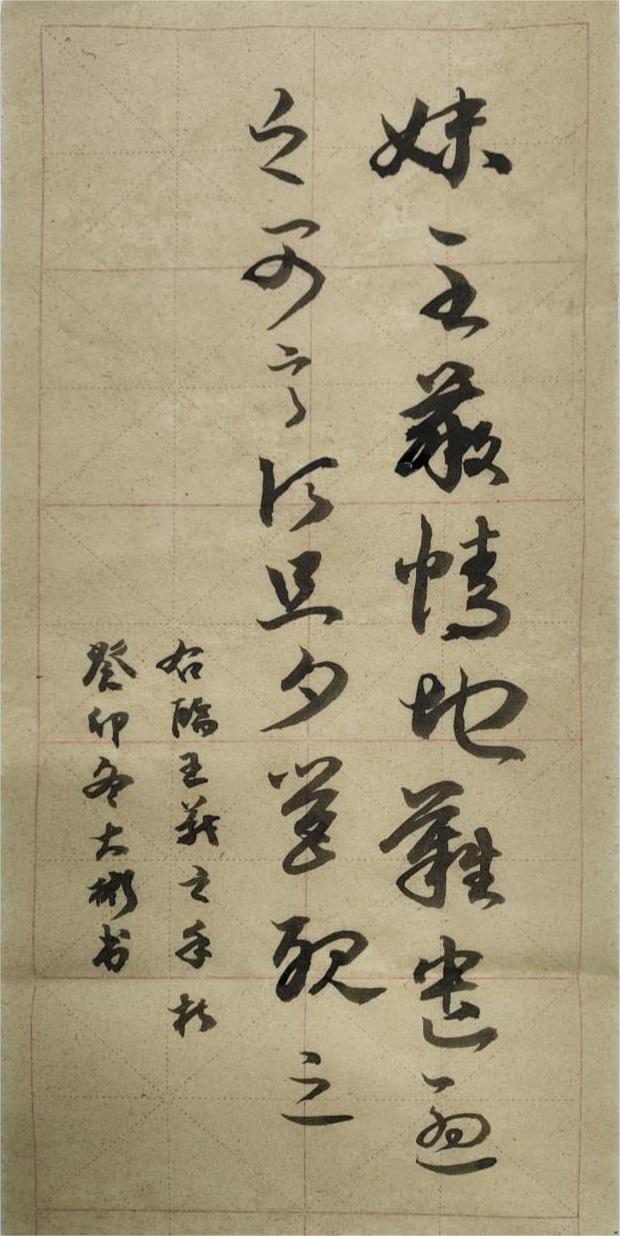 妹至羸情地難遣憂
之可言須旦夕營視之
右臨王羲之手札
癸卯冬大彬书